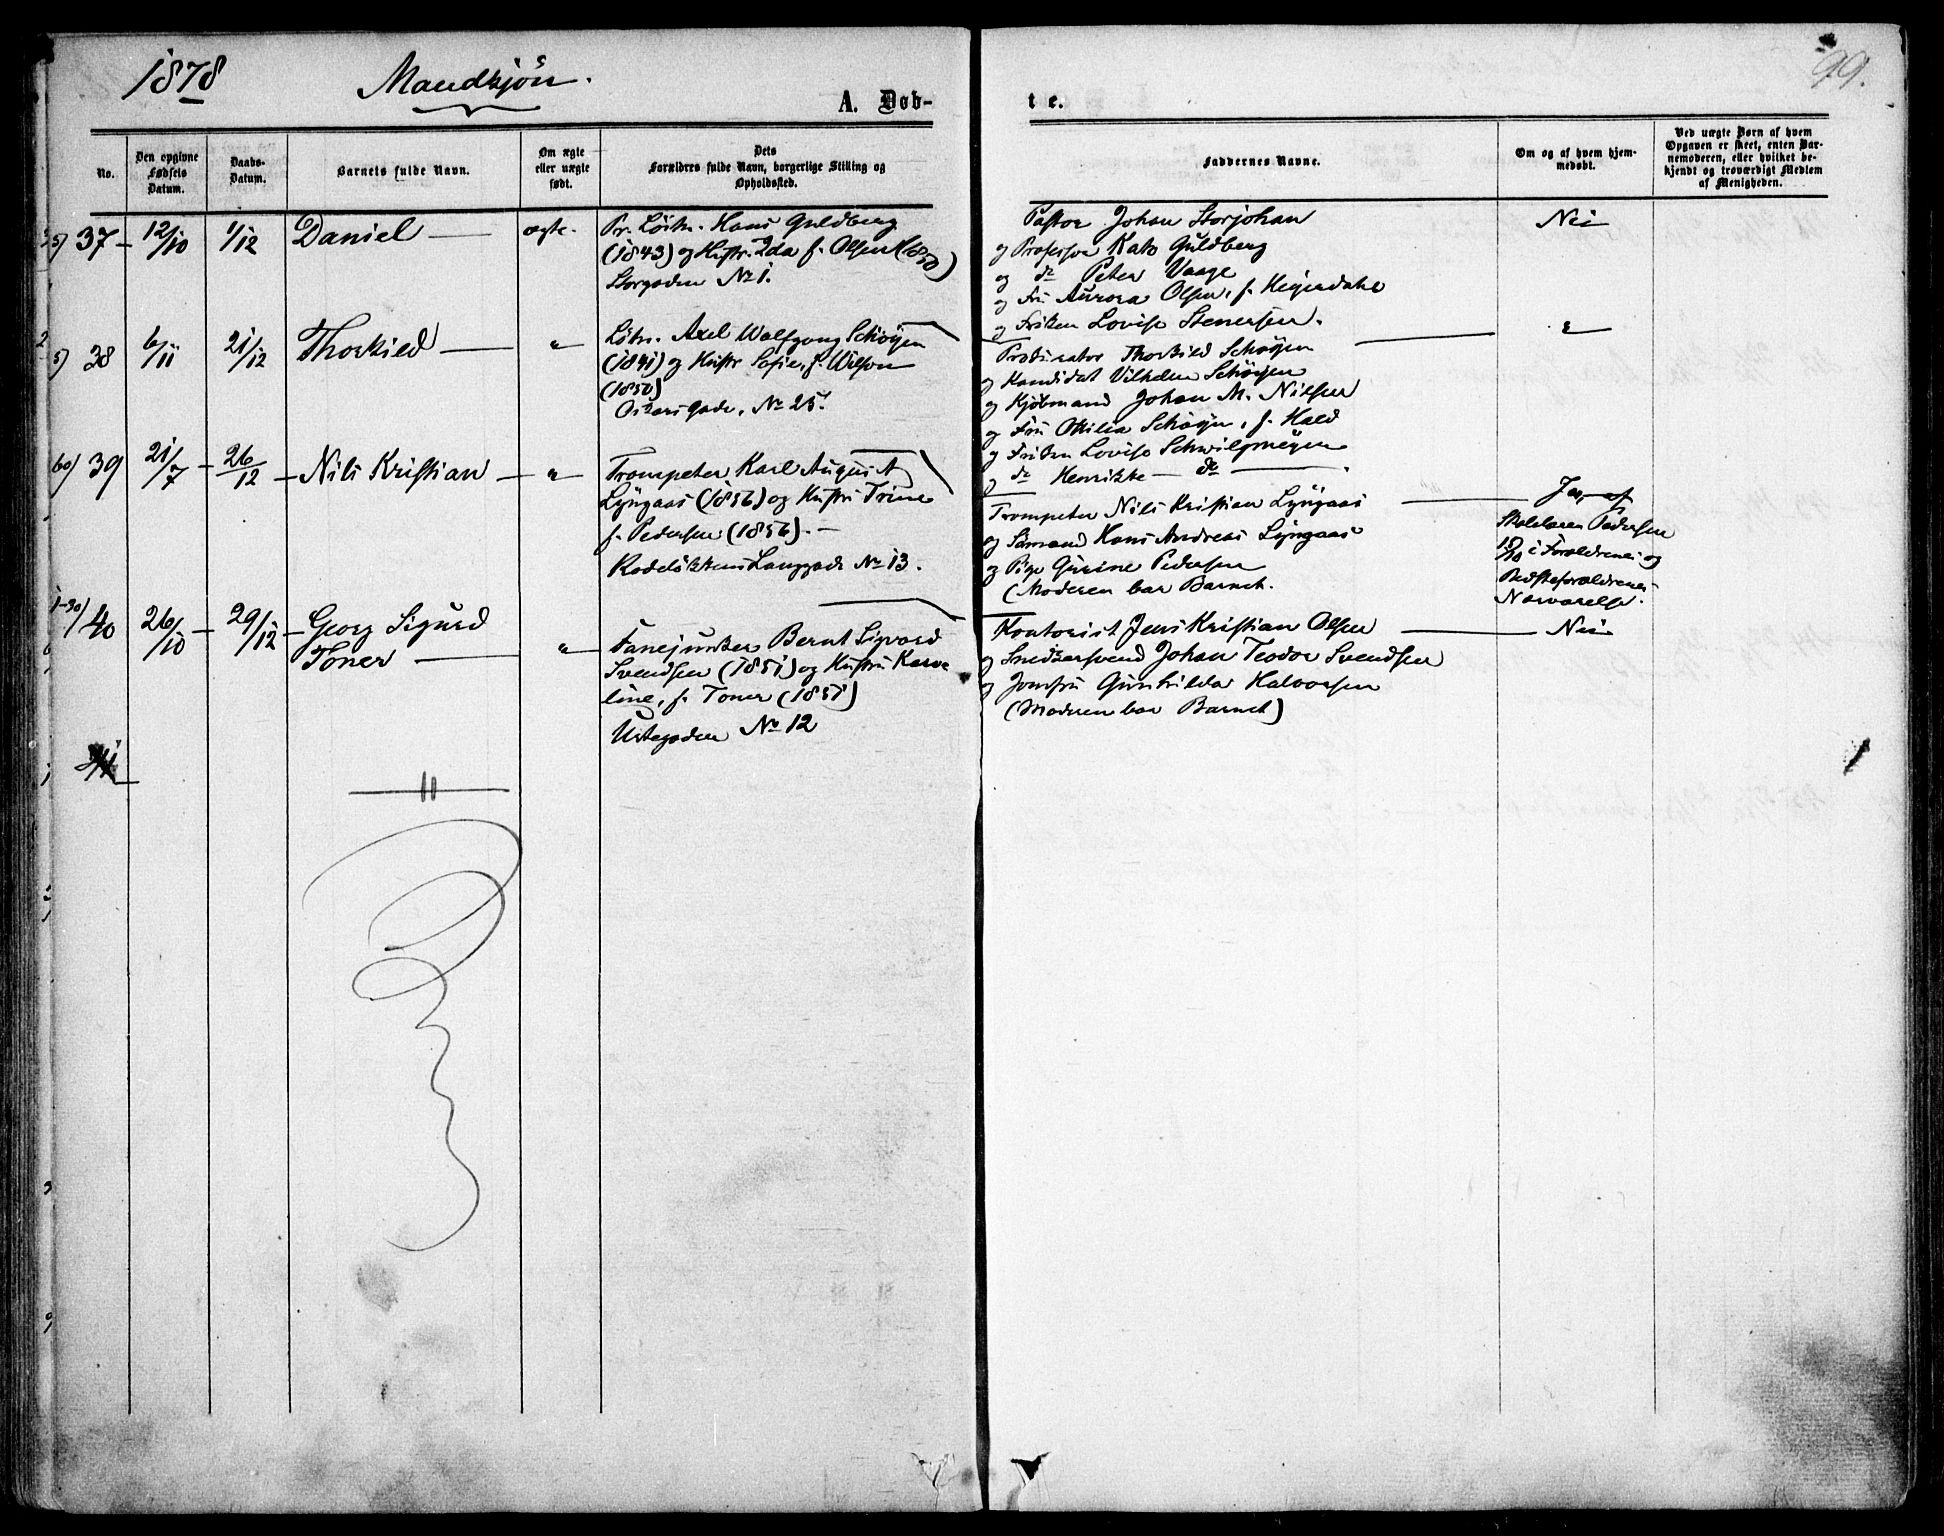 1878 Mandkjön.
99.
A. Døb-
t e.
No.
Den opgivne Fødsels Datum.
Daabs-Datum.
Barnets fulde Navn.
Om ægte eller uægte født.
Dets Forældres fulde Navn, borgerlige Stilling og Opholdssted.
Faddernes Navne.
Om og af hvem hjemmedøbt.
Ved uægte Børn af hvem Opgaven er skeet, enten Barnemoderen, eller hvilket bekjendt og troværdigt Medlem af Menigheden.
5) 37 – 12/10 1/12 Daniel — ægte.
Pr. Løitn. Hans Guldberg
(1843) og Hustr. Ida f. Olsen (1850)
Storgaden No 1.
Pastor Johan Storjohan
og Professor Kato Guldberg
og do Peter Waage
og Fru Aurora Olsen, f. Heijerdahl
og Frøken Lovise Stenersen.
Nei
5) 38 6/11 21/12 Thorkild — "
Løitn. Axel Wolfgang Schøyen
(1841) og Hustr Sofie, f. Wilson
(1850)
Oskarsgade, No 25.
Prokurator Thorkild Schøyen
og Kandidat Vilhelm Schøyen
og Kjøbmand Johan M. Nielsen
og Fru Otilia Schøyen, f. Hald
og Frøken Lovise Schwilpmeyen
og do Henrikke — do —
"
60) 39 21/7 – 26/12 – Nils Kristian – "
Trompeter Karl August
Lyngaas (1856) og Hustru Trine
f. Pedersen (1856). –
Rodeløkkens Langgade No 13.
Trompeter Nils Kristian Lyngaas
og Sømand Hans Andreas Lyngaas
og Pige Gurine Pedersen
(Moderen bar Barnet.
Ja, af
Skolelærer Pedersen
i Forældrenes og
Bedsteforældrenes
Nærværelse.
1-30) 40 26/10 – 29/12 – Georg Sigurd
Toner — "
Fanejunker Bernt Sigvard
Svendsen (1851) og Hustru Karo-
line, f. Toner (1851)
Urtegaden No 12
Kontorist Jens Kristian Olsen
og Snedkersvend Johan Teodor Svendsen
og Jomfru Gunhilda Halvorsen
(Moderen bar Barnet)
Nei
41